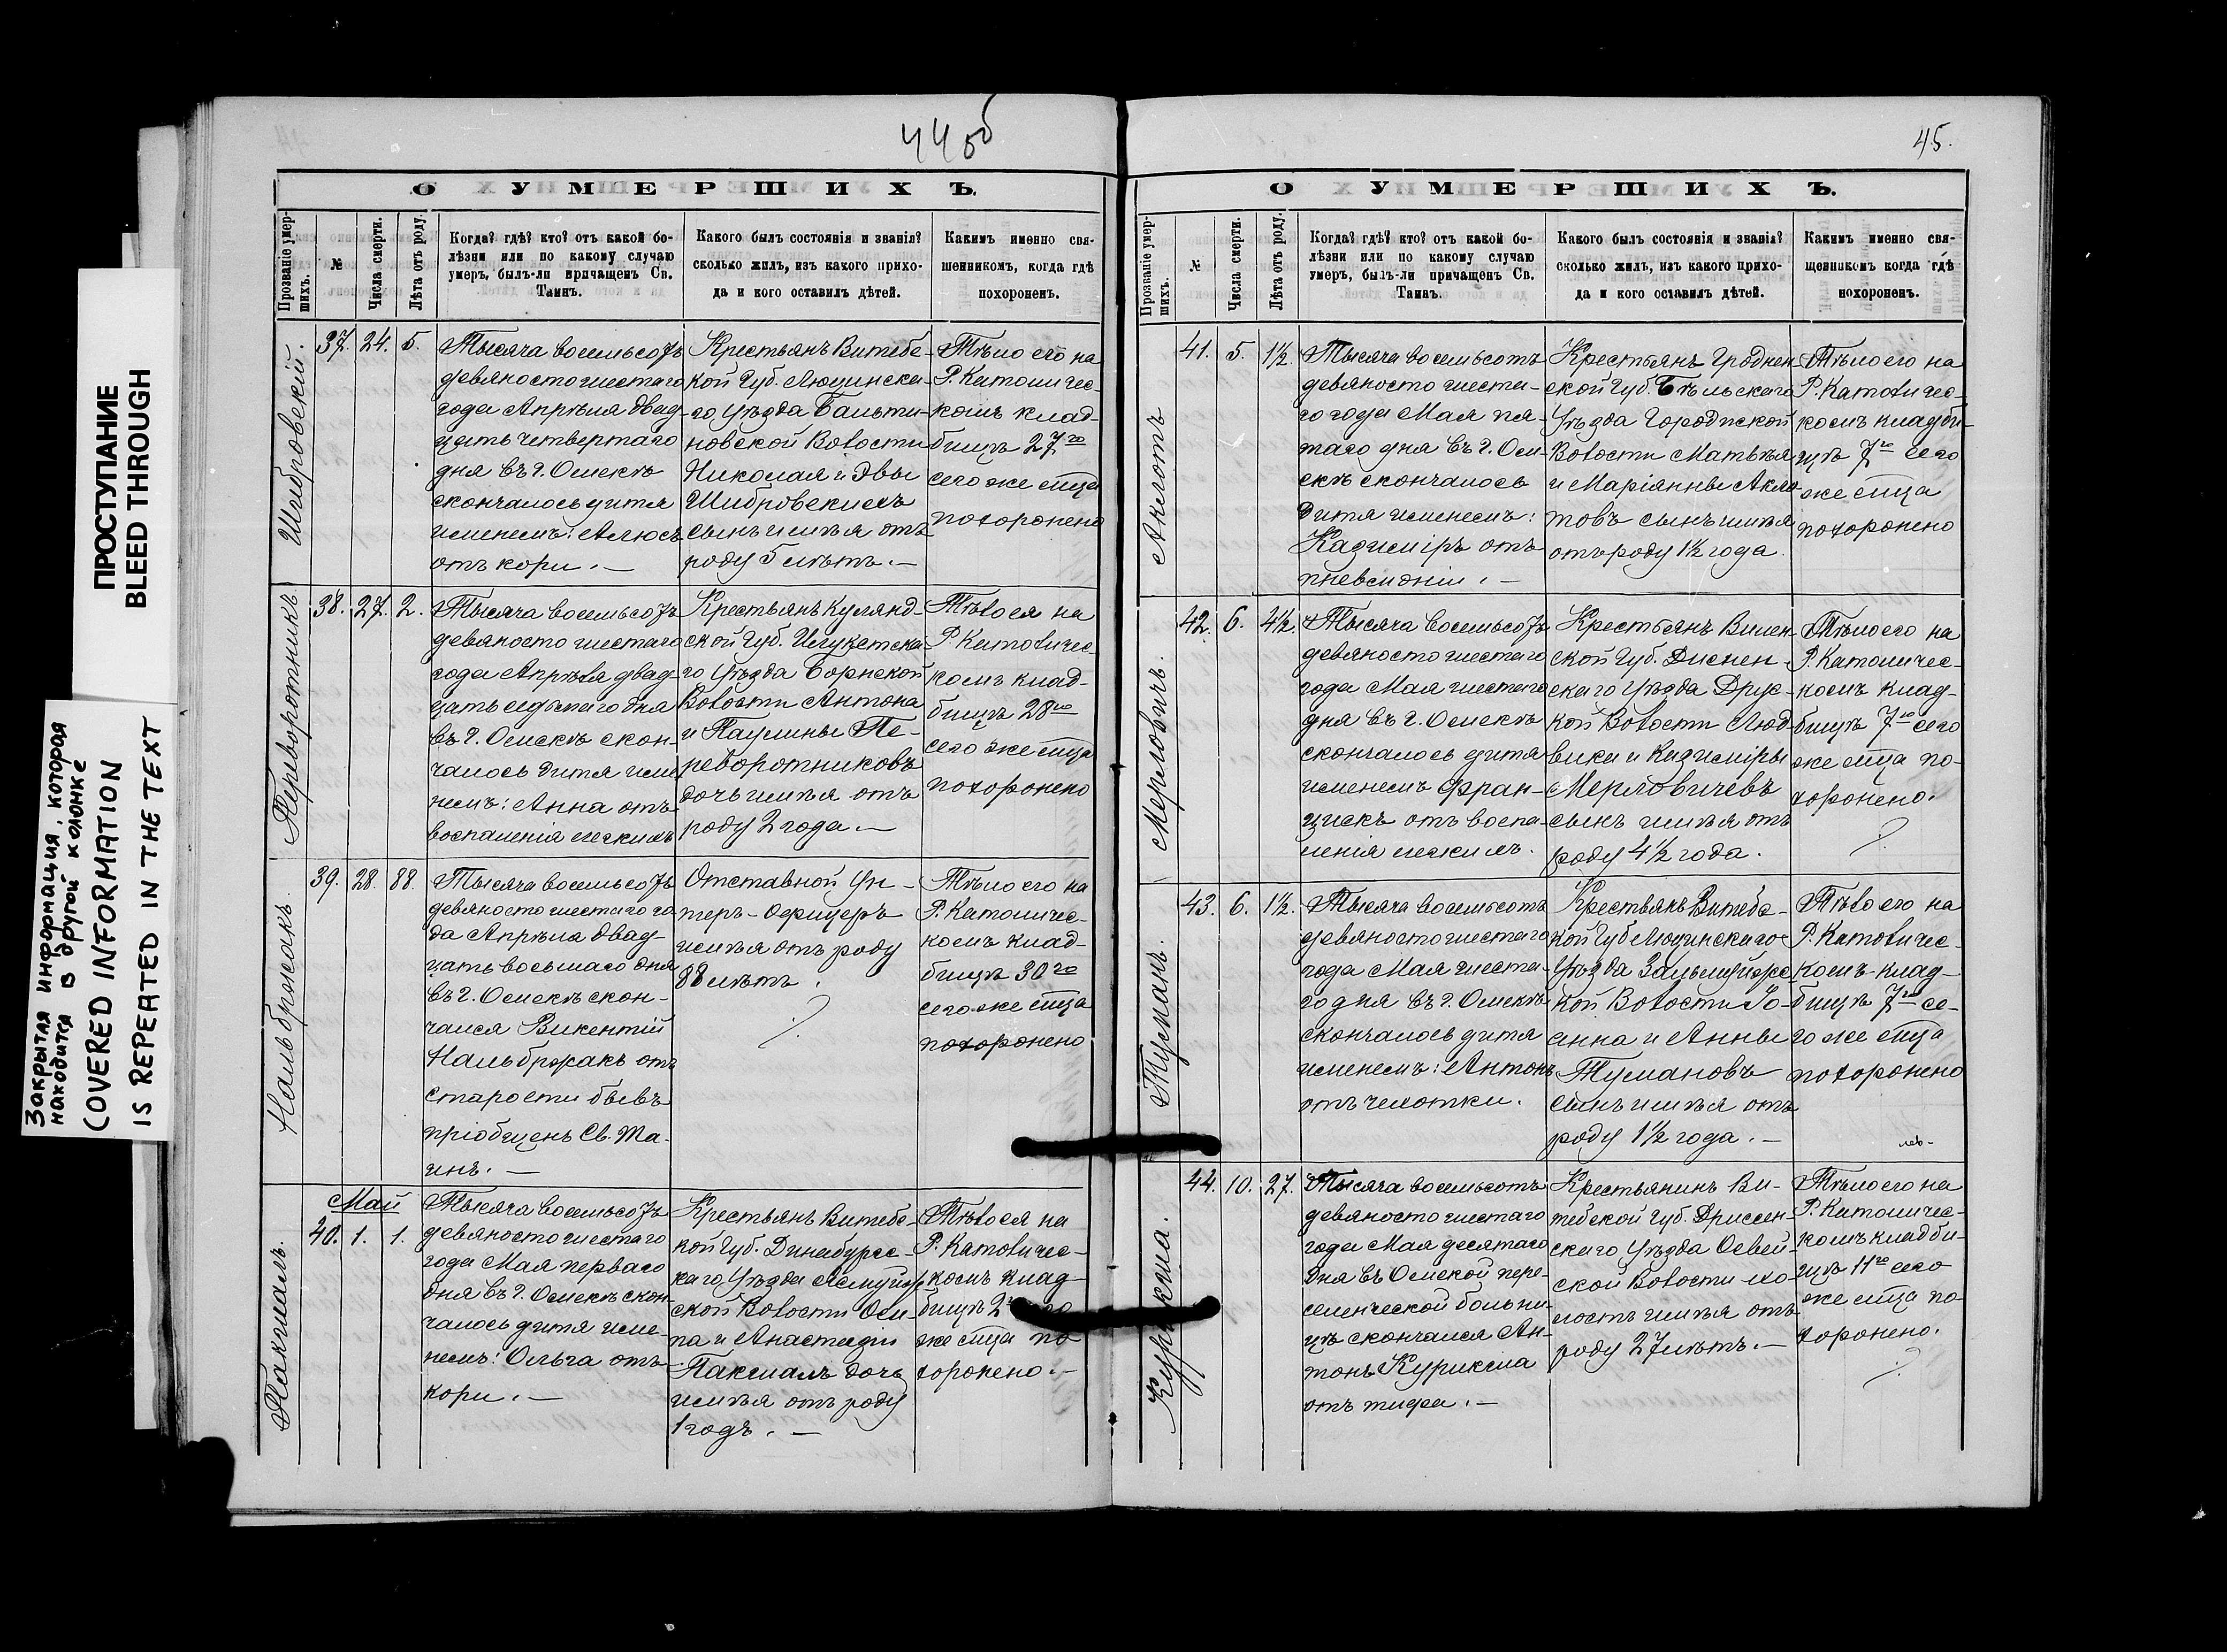 ПРОСТУПАНИЕ
BLEED THROUGH
Закрытая информация, которая
находится в другой колонке
COVERED INFORMATION
IS REPEATED IN THE TEXT
44 об
О УМЕРШИХЪ.
Прозваніе умер-
шихъ.
№
Числа смерти.
Лѣта отъ роду.
Когда? гдѣ? кто? отъ какой бо-
лѣзни или по какому случаю
умеръ, былъ-ли причащенъ Св.
Таинъ.
Какого былъ состоянія и званія?
сколько жилъ, изъ какого прихо-
да и кого оставилъ дѣтей.
Какимъ именно свя-
шенникомъ, когда гдѣ
похороненъ.
Шибровскій.
37. 24. 5.
Тысяча восемьсотъ
девяносто шестаго
года Апрѣля двад-
цать четвертаго
дня въ г. Омскѣ
скончалось дитя
именемъ:
отъ кори. —
Крестьянъ Витебс-
кой Губ. Люцинска-
го уѣзда Бальти-
новской Волости
Николая и Эвы
Шибровскихъ
сынъ имѣя отъ
роду 5 лѣтъ. —
Тѣло его на
Р. Католичес-
комъ клад-
бищѣ 27го
сего же мца
похоронено
Переворотникъ
38. 27. 2.
Тысяча восемьсотъ
девяносто шестаго
года Апрѣля двад-
цать седьмаго дня
въ г. Омскѣ скон-
чалось дитя име
немъ: Анна отъ
воспаленія легкихъ
Крестьянъ Курлянд-
ской Губ. Иллукстска
го уѣзда Борнской
Волости Антона
и Паулины Пе-
реворотниковъ
дочь имѣя отъ
роду 2 года. —
Тѣло ея на
Р. Католичес-
комъ клад-
бищѣ 28го
сего же мца
похоронено
Нальброжакъ
39. 28. 88.
Тысяча восемьсотъ
девяносто шестаго го
да Апрѣля двад-
цать восьмаго дня
въ г. Омскѣ скон-
чался Викентій
Нальброжакъ отъ
старости бывъ
пріобщенъ Св. Та-
инъ. —
Отставной Ун-
теръ-Офицеръ
имѣя отъ роду
88 лѣтъ.
Тѣло его на
Р. Католичес-
комъ клад-
бищѣ 30го
сего же мца
похоронено
Пакшалъ.
Май
40. 1. 1.
Тысяча восемьсотъ
девяносто шестаго
года Мая перваго
дня въ г. Омскѣ скон-
чалось дитя име-
немъ: Ольга отъ
кори. —
Крестьянъ Витебс-
кой Губ. Динабургс-
каго уѣзда
ской Волости Оси-
па и Анастасіи
Пакшалъ дочь
имѣя отъ роду
1 годъ. —
Тѣло ея на
Р. Католичес-
комъ клад-
бищѣ
же мца по
хоронено. —
45.
О УМЕРШИХЪ.
Прозваніе умер-
шихъ.
№
Числа смерти.
Лѣта отъ роду.
Когда? гдѣ? кто? отъ какой бо-
лѣзни или по какому случаю
умеръ, былъ-ли причащенъ Св.
Таинъ.
Какого былъ состоянія и званія?
сколько жилъ, изъ какого прихо-
да и кого оставилъ дѣтей.
Какимъ именно свя-
щенникомъ когда гдѣ
похороненъ.
Аклотъ
41. 5. 1½.
Тысяча восемьсотъ
девяносто шеста-
го года Мая пя-
таго дня въ г. Ом-
скѣ скончалось
дитя именемъ:
Казиміръ отъ
пневмоніи. —
Крестьянъ Гроднен
ской Губ. Бѣльскаго
Уѣзда Городиской
Волости Матвѣя
и Маріянны Акло
товъ сынъ имѣя
отъ роду 1½ года.
Тѣло его на
Р. Католичес-
комъ кладби-
щѣ 7го сего
же мца
похоронено
Мерловичъ.
42. 6. 4½.
Тысяча восемьсотъ
девяносто шестаго
года Мая шестаго
дня въ г. Омскѣ
скончалось дитя
именемъ Фран-
цискъ отъ воспа-
ленія легкихъ.
Крестьянъ Вилен-
ской Губ. Диснен-
скаго уѣзда Друс-
кой Волости Люд-
вика и Казиміры
Мерловичевъ
сынъ имѣя отъ
роду 4½ года.
Тѣло его на
Р. Католичес-
комъ клад-
бищѣ 7го сего
же мца по-
хоронено.
Тусманъ.
43. 6. 1½.
Тысяча восемьсотъ
девяносто шестаго
года Мая шеста-
го дня въ г. Омскѣ
скончалось дитя
именемъ: Антонъ
отъ чахотки.
Крестьянъ Витебс-
кой Губ Люцинскаго
Уѣзда
кой Волости Іо-
анна и Анны
Тумановъ
сынъ имѣя отъ
роду 1½ года. —
Тѣло его на
Р. Католичес-
комъ клад-
бищѣ 7го се-
го же мца
похоронено
44. 10. 27.
Тысяча восемьсотъ
девяносто шестаго
года Мая десятаго
дня въ Омской пере-
селенческой больни-
цѣ скончался Ан-
тонъ Курикша
отъ тифа. —
Крестьянинъ Ви-
тебской Губ. Дриссен-
скаго уѣзда Освей-
ской Волости хо-
лостъ имѣя отъ
роду 27 лѣтъ. —
Тѣло его на
Р. Католичес-
комъ кладби-
щѣ 11го сего
же мца по
хоронено.